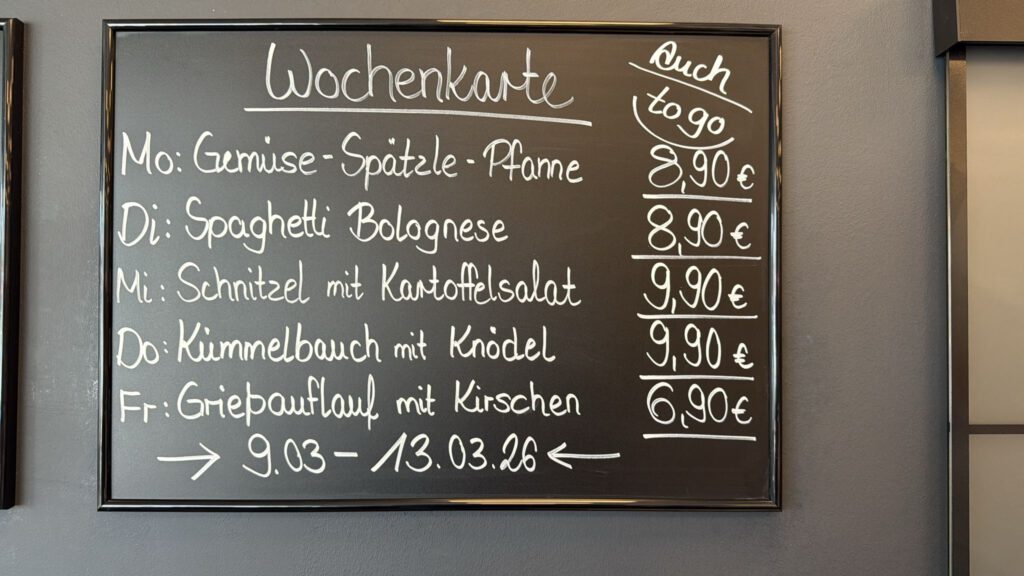 Wochenkarte
Auch
to go
Mo: Gemüse-Spätzle-Pfanne 8,90 €
Di: Spaghetti Bolognese 8,90 €
Mi: Schnitzel mit Kartoffelsalat 9,90 €
Do: Kümmelbauch mit Knödel 9,90 €
Fr: Grießauflauf mit Kirschen 6,90 €
→ 9.03 – 13.03.26 ←